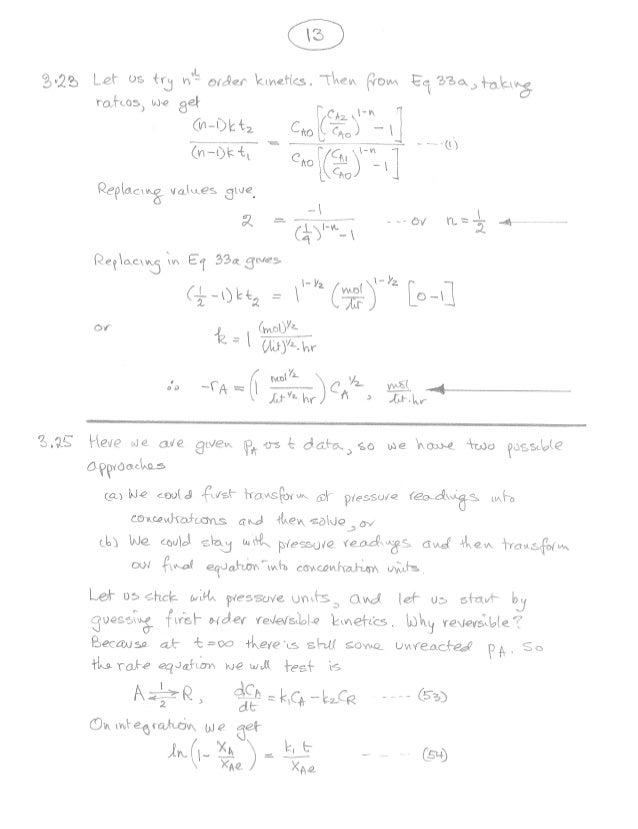 13
3.23 Let us try nth order kinetics. Then from Eq 33a, taking
ratios, we get
(n-1)kt2 / (n-1)kt1 = CA0[(CA2/CA0)^1-n - 1] / CA0[(CA1/CA0)^1-n - 1] ---- (1)
Replacing values give.
2 = -1 / ((1/4)^1-n - 1) --- or n = 1/2
Replacing in Eq 33a gives
(1/2 - 1)kt2 = 1^1-1/2 (mol/lit)^1-1/2 [0-1]
or k = 1 (mol)^1/2 / (lit)^1/2.hr
∴ -rA = (1 mol^1/2 / lit^1/2 hr) CA^1/2, mol / lit.hr
3.25 Here we are given pA vs t data, so we have two possible
approaches
(a) We could first transform at pressure readings into
concentrations and then solve, or
(b) We could stay with pressure readings and then transform
our final equation into concentration units.
Let us stick with pressure units, and let us start by
guessing first order reversible kinetics. Why reversible?
Because at t=∞ there is still some unreacted pA. So
the rate equation we will test is
A 1⇌2 R, dCA/dt = k1CA - k2CR ----- (53)
On integration we get
ln(1 - XA/XAe) = k1 t / XAe ---- (54)